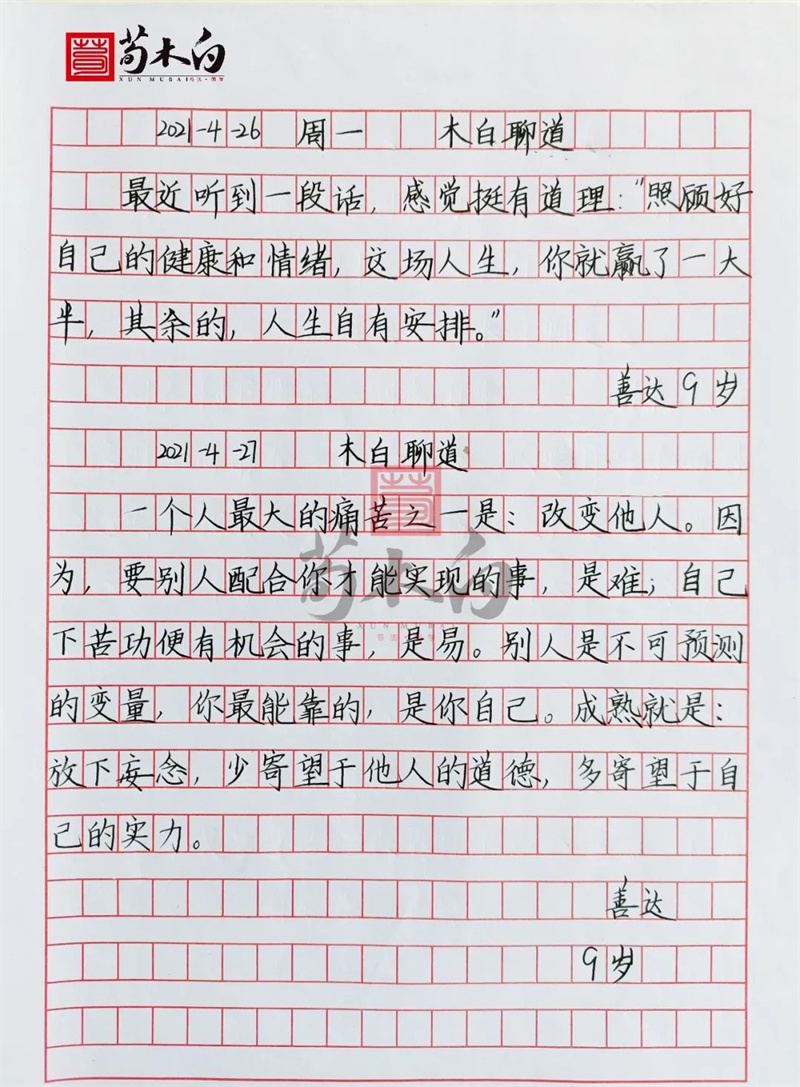 荀木白
XUN MUBAI
2021-4-26 周一 木白聊道
最近听到一段话，感觉挺有道理：“照顾好
自己的健康和情绪，这场人生，你就赢了一大
半，其余的，人生自有安排。”
善达9岁
2021-4-27 木白聊道
一个人最大的痛苦之一是：改变他人。因
为，要别人配合你才能实现的事，是难；自己
下苦功便有机会的事，是易。别人是不可预测
的变量，你最能靠的，是你自己。成熟就是：
放下妄念，少寄望于他人的道德，多寄望于自
己的实力。
善达
9岁
荀木白
XUN MUBAI